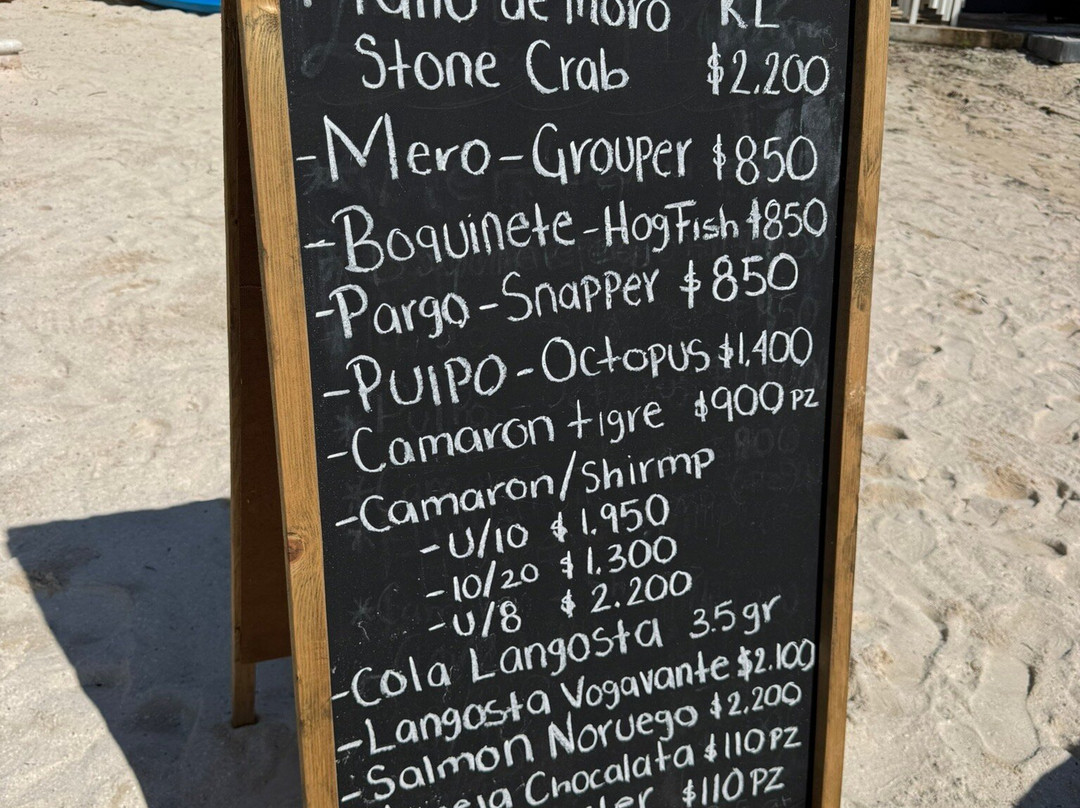 de moro KL
Stone Crab $2.200
-Mero-Grouper $850
-Boquinete-HogFish $850
-Pargo-Snapper $850
-PUlPO-Octopus $1,400
-Camaron tigre $900 PZ
-Camaron/Shirmp
-U/10 $1.950
-10/20 $1.300
-U/8 $2.200
-Cola Langosta 3.5gr
-Langosta Vogavante $2.100
-Salmon Noruego $2.200
Chocalata $110 PZ
$110 PZ